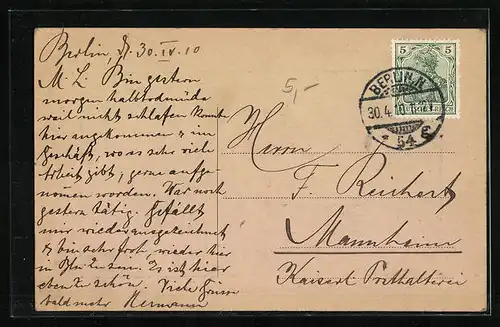 Berlin, d. 30. IV. 10
M. L. Bin gestern
morgen halbtodmüde
weil nicht schlafen konnte
hier angekommen & im
Geschäft, wo es sehr viele
Arbeit gibt, gerne aufge-
nommen worden. War noch
gestern tätig. Gefällt
mir wieder ausgezeichnet
& bin sehr froh wieder hier
in zu sein. Es ist hier
eben zu schön. Viele Grüsse
bald mehr Hermann
5,-
5 5
BERLIN, N.
30.4.10.
* 54 *
Herrn
F. Reichert
Mannheim
Kaiserl. Posthalterei